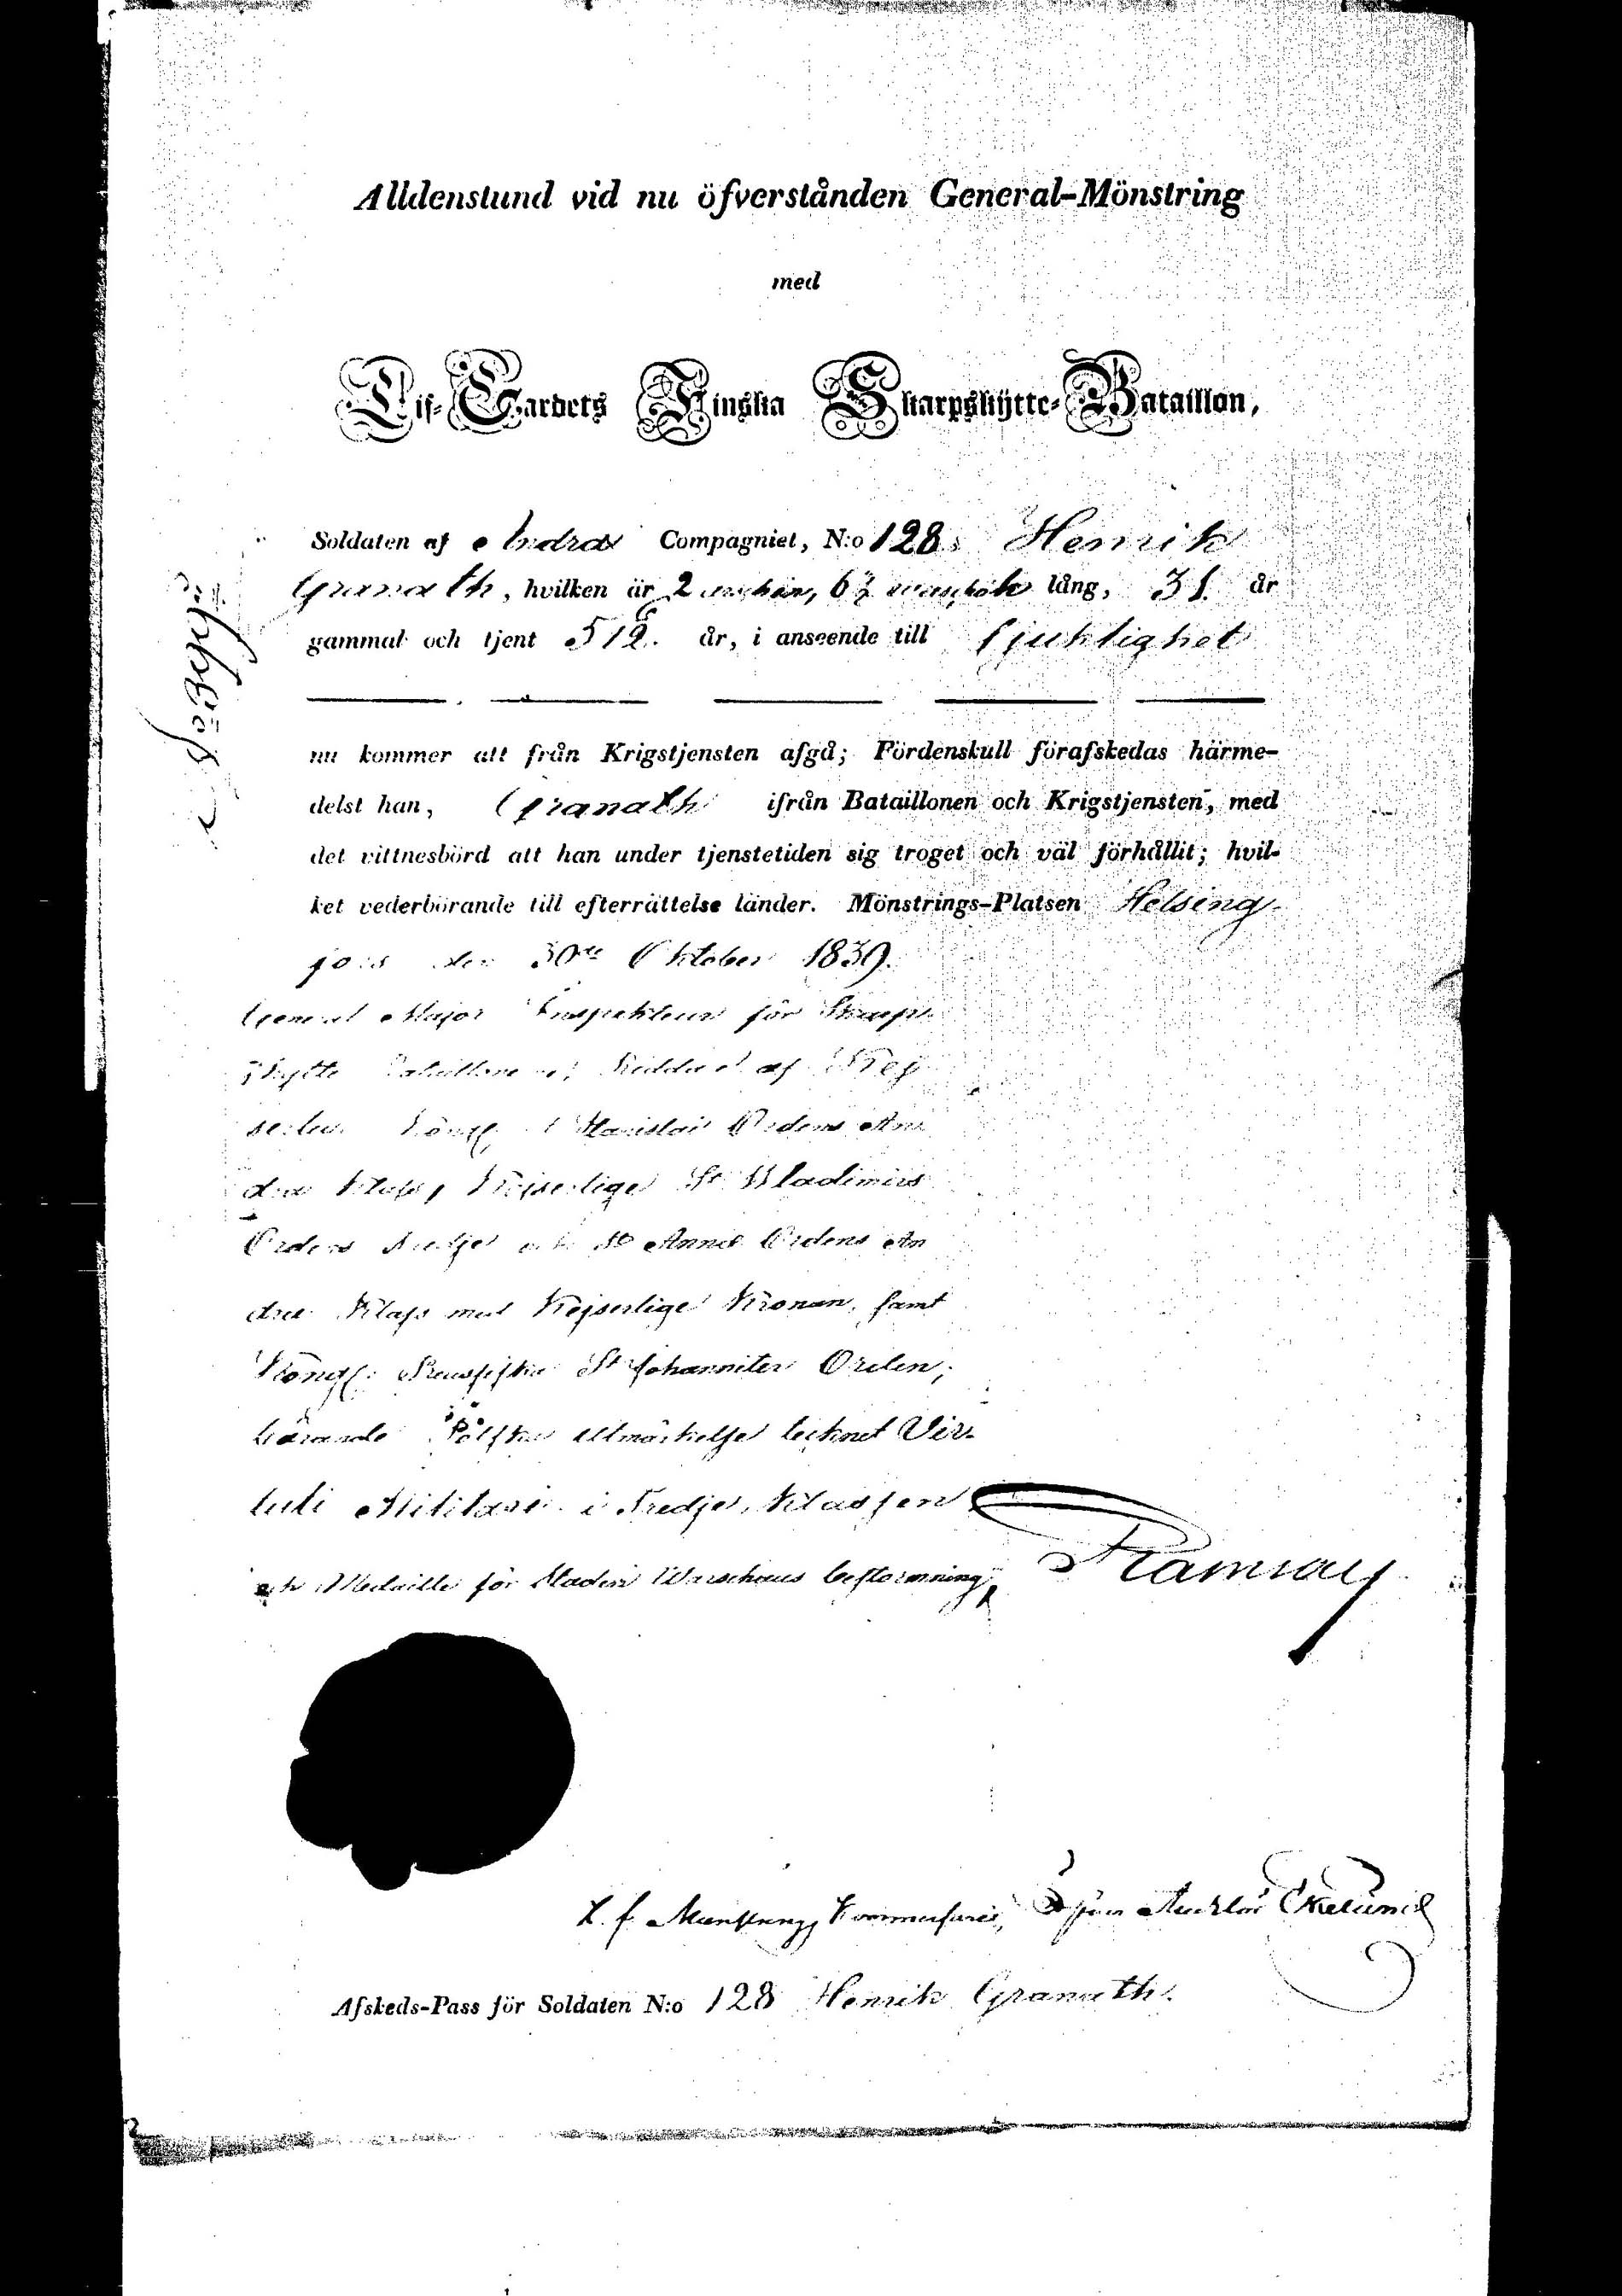 Alldenstund vid nu öfverstånden General-Mönstring
med
Lif-Gardets Finska Skarpskytte-Bataillon,
Soldaten af Andra Compagniet, N:o 128, Henrik
Granath, hvilken är 2 lång, 31 år
gammal och tjent år, i anseende till Sjuklighet
nu kommer att från Krigstjensten afgå; Fördenskull förafskedas härme-
delst han, Granath ifrån Bataillonen och Krigstjensten, med
det vittnesbörd att han under tjenstetiden sig troget och väl förhållit; hvil-
ket vederbörande till efterrättelse länder. Mönstrings-Platsen Helsing-
fors den 30de Oktober 1839.
General Major Inspekteur för Skarp-
skytte Bataillonerne, Riddare af Kej-
serlig. Kongl. St Stanislai Ordens An-
dra Klass, Kejserlige St Wladimirs
Ordens Tredje och St Annæ Ordens An
dra Klass med Kejserlige Kronan, samt
Kongl. Preussiska St Johanniter Orden;
bärande Polska utmärkelse tecknet Vir-
tuti Militari i Tredje Klassen
och Medaille för Staden Warschaus bestormning,
Ramsay
Ekelund
Afskeds-Pass för Soldaten N:o 128 Henrik Granath.